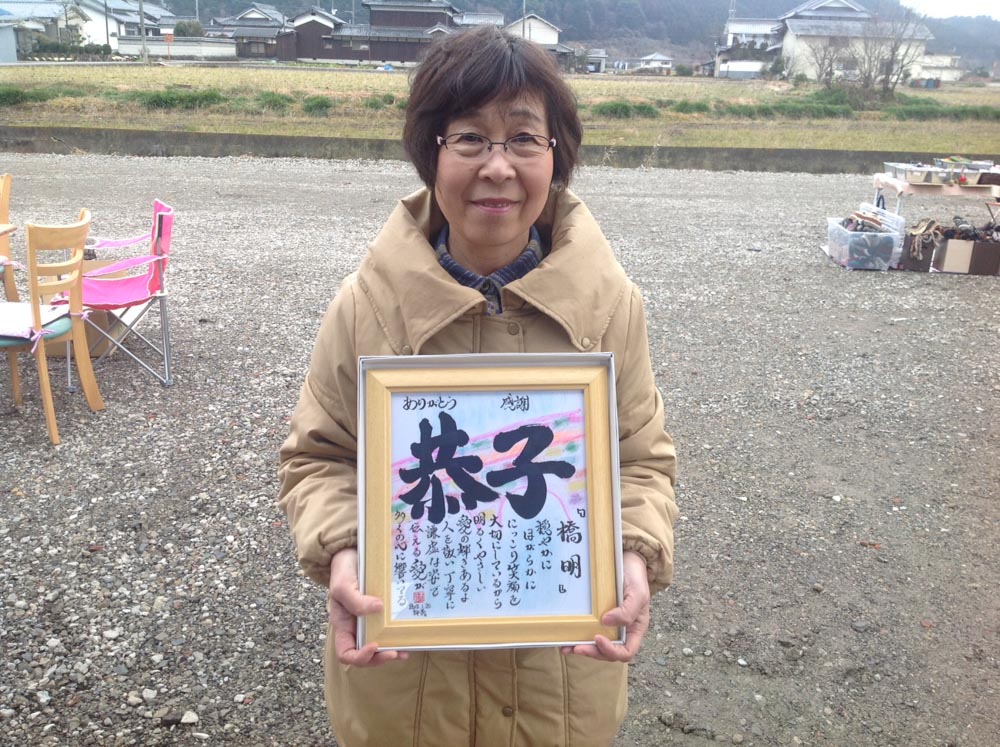 ありがとう　感謝
恭子
「橋明」
穏やかに
ほがらかに
にっこり笑顔を
大切にしているから
明るくやさしい
愛の輝きあるよ
人を敬い丁寧に
謙虚な姿で
伝える愛が
多くの心に響いてる